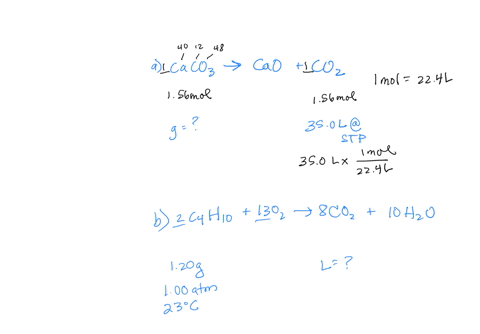 40 12 48
a) 1CaCO₃ → CaO + 1CO₂
1mol = 22.4L
1.56mol 1.56mol
g = ? 35.0L @
STP
35.0 L x 1mol
22.4L
b) 2C4H10 + 13O₂ → 8CO₂ + 10H₂O
1.20g L = ?
1.00 atm
23°C